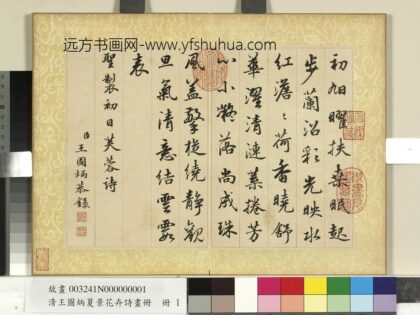 远方书画网-www.yfshuhua.com
初旭曜扶桑眠起
步蘭沼彩光映水
紅澹澹荷香曉舒
華溼清漣葉捲芳
心小凝落尚成珠
風蓋擎挺繞靜觀
旦氣清意結雲霞
表
聖製初日芙蓉詩
臣王圖炳恭錄
故畫 003241N000000001
清王圖炳夏景花卉詩畫冊 冊 1